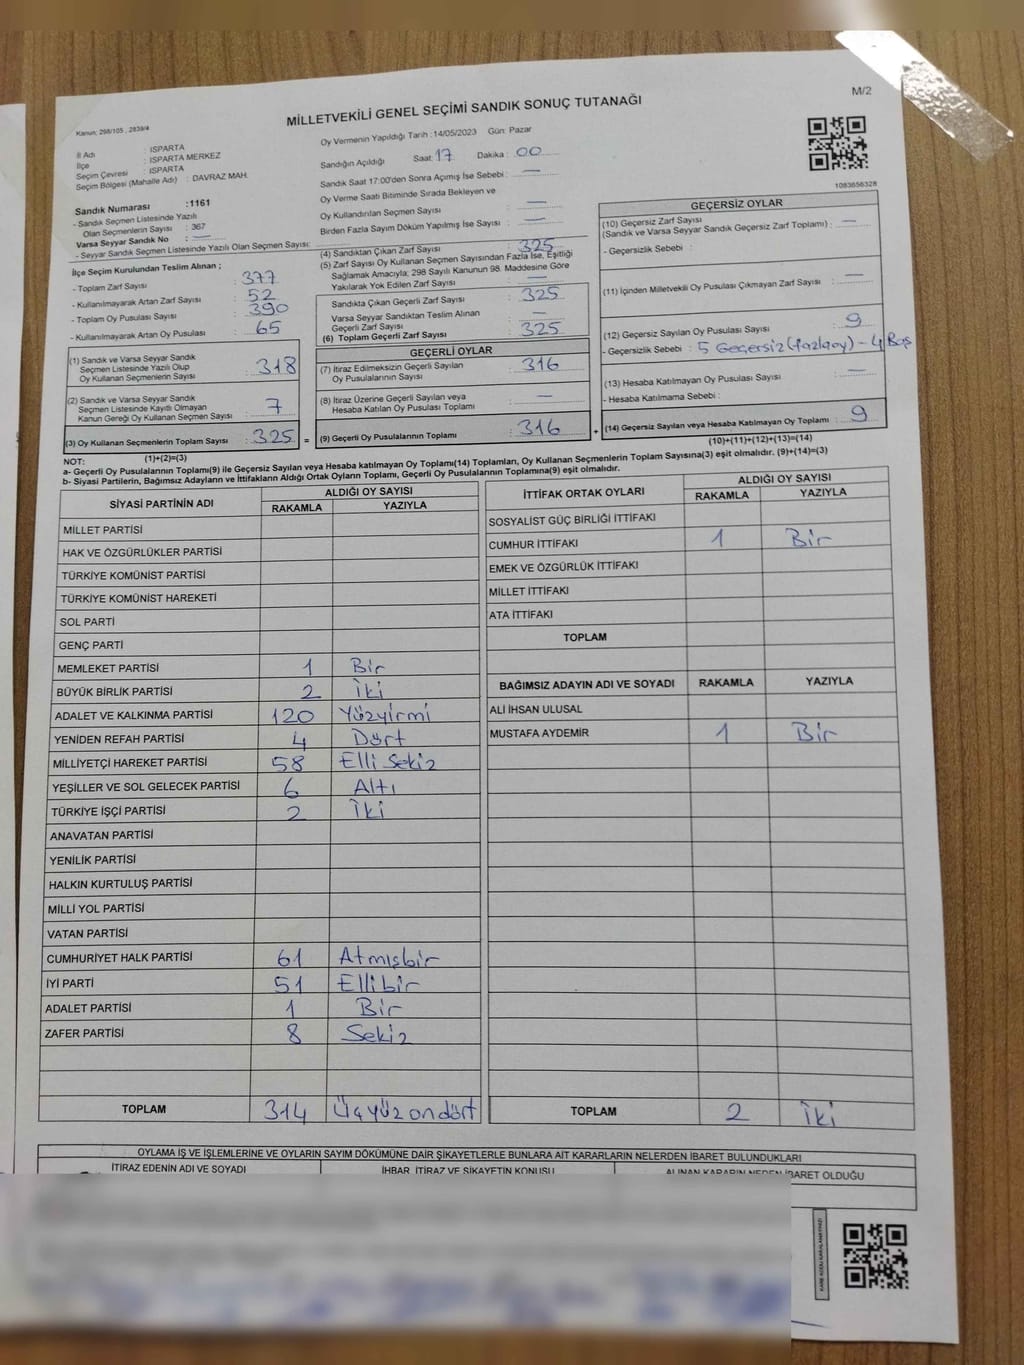 M/2
MİLLETVEKİLİ GENEL SEÇİMİ SANDIK SONUÇ TUTANAĞI
Kanun: 298/105 , 2839/4
İl Adı : ISPARTA
İlçe : ISPARTA MERKEZ
Seçim Çevresi : ISPARTA
Seçim Bölgesi (Mahalle Adı) : DAVRAZ MAH.
Sandık Numarası :1161
- Sandık Seçmen Listesinde Yazılı
Olan Seçmenlerin Sayısı : 367
Varsa Seyyar Sandık No : —
- Seyyar Sandık Seçmen Listesinde Yazılı Olan Seçmen Sayısı:
İlçe Seçim Kurulundan Teslim Alınan ;
- Toplam Zarf Sayısı : 377
- Kullanılmayarak Artan Zarf Sayısı : 52
- Toplam Oy Pusulası Sayısı : 390
- Kullanılmayarak Artan Oy Pusulası : 65
(1) Sandık ve Varsa Seyyar Sandık
Seçmen Listesinde Yazılı Olup
Oy Kullanan Seçmenlerin Sayısı : 318
(2) Sandık ve Varsa Seyyar Sandık
Seçmen Listesinde Kayıtlı Olmayan
Kanun Gereği Oy Kullanan Seçmen Sayısı : 7
(3) Oy Kullanan Seçmenlerin Toplam Sayısı : 325 =
(1)+(2)=(3)
Oy Vermenin Yapıldığı Tarih :14/05/2023 Gün: Pazar
Sandığın Açıldığı Saat: 17 Dakika : 00
Sandık Saat 17:00'den Sonra Açımış İse Sebebi : —
Oy Verme Saati Bitiminde Sırada Bekleyen ve
Oy Kullandırılan Seçmen Sayısı : —
Birden Fazla Sayım Döküm Yapılmış İse Sayısı : —
(4) Sandıktan Çıkan Zarf Sayısı : 325
(5) Zarf Sayısı Oy Kullanan Seçmen Sayısından Fazla İse, Eşitliği
Sağlamak Amacıyla; 298 Sayılı Kanunun 98. Maddesine Göre
Yakılarak Yok Edilen Zarf Sayısı : —
Sandıkta Çıkan Geçerli Zarf Sayısı : 325
Varsa Seyyar Sandıktan Teslim Alınan
Geçerli Zarf Sayısı : —
(6) Toplam Geçerli Zarf Sayısı : 325
GEÇERLİ OYLAR
(7) İtiraz Edilmeksizin Geçerli Sayılan
Oy Pusulalarının Sayısı : 316
(8) İtiraz Üzerine Geçerli Sayılan veya
Hesaba Katılan Oy Pusulası Toplamı : —
(9) Geçerli Oy Pusulalarının Toplamı : 316 +
1083656328
GEÇERSİZ OYLAR
(10) Geçersiz Zarf Sayısı
(Sandık ve Varsa Seyyar Sandık Geçersiz Zarf Toplamı) : —
- Geçersizlik Sebebi :
(11) İçinden Milletvekili Oy Pusulası Çıkmayan Zarf Sayısı : —
(12) Geçersiz Sayılan Oy Pusulası Sayısı : 9
- Geçersizlik Sebebi : 5 Geçersiz (fazla oy) - 4 Boş
(13) Hesaba Katılmayan Oy Pusulası Sayısı : —
- Hesaba Katılmama Sebebi :
(14) Geçersiz Sayılan veya Hesaba Katılmayan Oy Toplamı : 9
(10)+(11)+(12)+(13)=(14)
NOT:
a- Geçerli Oy Pusulalarının Toplamı(9) ile Geçersiz Sayılan veya Hesaba katılmayan Oy Toplamı(14) Toplamları, Oy Kullanan Seçmenlerin Toplam Sayısına(3) eşit olmalıdır. (9)+(14)=(3)
b- Siyasi Partilerin, Bağımsız Adayların ve İttifakların Aldığı Ortak Oyların Toplamı, Geçerli Oy Pusulalarının Toplamına(9) eşit olmalıdır.
SİYASİ PARTİNİN ADI ALDIĞI OY SAYISI
RAKAMLA YAZIYLA
MİLLET PARTİSİ
HAK VE ÖZGÜRLÜKLER PARTİSİ
TÜRKİYE KOMÜNİST PARTİSİ
TÜRKİYE KOMÜNİST HAREKETİ
SOL PARTİ
GENÇ PARTİ
MEMLEKET PARTİSİ 1 Bir
BÜYÜK BİRLİK PARTİSİ 2 İki
ADALET VE KALKINMA PARTİSİ 120 Yüzyirmi
YENİDEN REFAH PARTİSİ 4 Dört
MİLLİYETÇİ HAREKET PARTİSİ 58 Elli Sekiz
YEŞİLLER VE SOL GELECEK PARTİSİ 6 Altı
TÜRKİYE İŞÇİ PARTİSİ 2 İki
ANAVATAN PARTİSİ
YENİLİK PARTİSİ
HALKIN KURTULUŞ PARTİSİ
MİLLİ YOL PARTİSİ
VATAN PARTİSİ
CUMHURİYET HALK PARTİSİ 61 Atmışbir
İYİ PARTİ 51 Ellibir
ADALET PARTİSİ 1 Bir
ZAFER PARTİSİ 8 Sekiz
TOPLAM 314 Üçyüz ondört
İTTİFAK ORTAK OYLARI ALDIĞI OY SAYISI
RAKAMLA YAZIYLA
SOSYALİST GÜÇ BİRLİĞİ İTTİFAKI
CUMHUR İTTİFAKI 1 Bir
EMEK VE ÖZGÜRLÜK İTTİFAKI
MİLLET İTTİFAKI
ATA İTTİFAKI
TOPLAM
BAĞIMSIZ ADAYIN ADI VE SOYADI RAKAMLA YAZIYLA
ALİ İHSAN ULUSAL
MUSTAFA AYDEMİR 1 Bir
TOPLAM 2 İki
OYLAMA İŞ VE İŞLEMLERİNE VE OYLARIN SAYIM DÖKÜMÜNE DAİR ŞİKAYETLERLE BUNLARA AİT KARARLARIN NELERDEN İBARET BULUNDUKLARI
İTİRAZ EDENİN ADI VE SOYADI İHBAR, İTİRAZ VE ŞİKAYETİN KONUSU ALINAN KARARIN NEDEN İBARET OLDUĞU